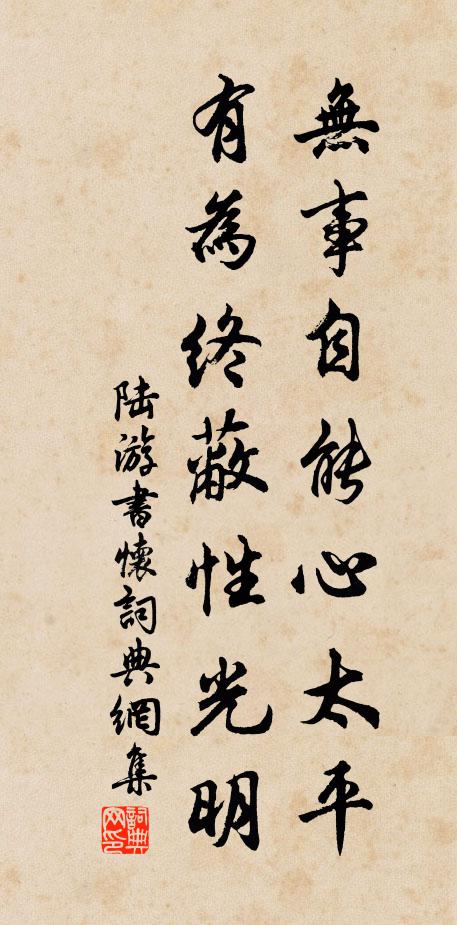 無事自能心太平
有為終蔽性光明
陸游書懷詞典網集
詞典網印